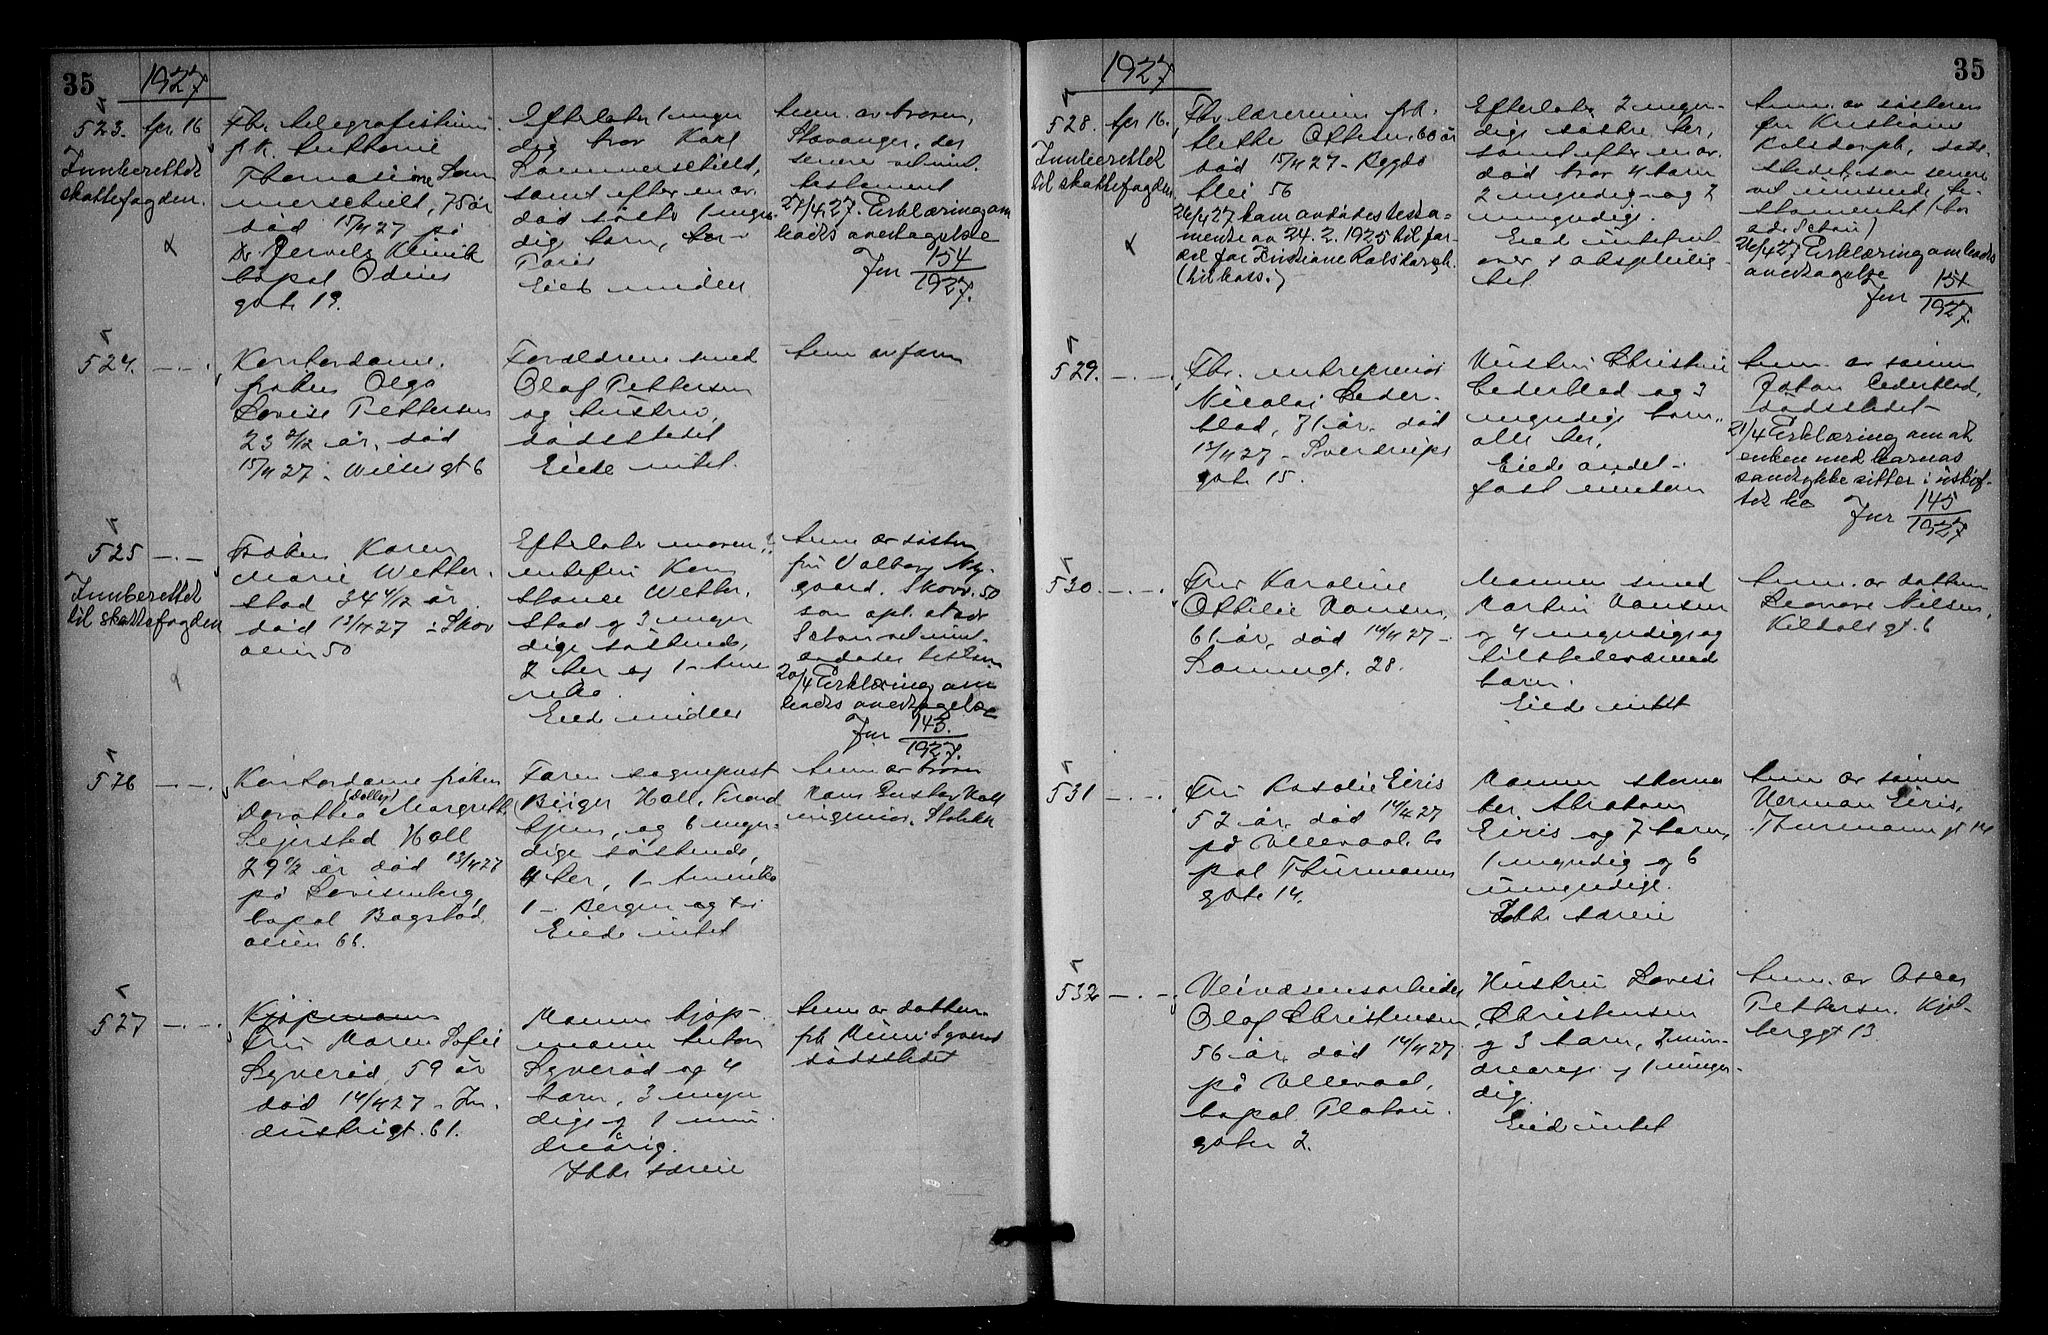 35
1927
523. Apr. 16
Innberettet
skattefogden.
Fhv. telegrafistinne
frk.
Thomasine Som
merschield, 75 år
død 15/4 27 på
Dr. Jervels Klinik
bopæl Odins
gate 19.
Efterlater 1 myn
dig bror Karl
Sommerschield,
samt efter en av
død søster 1 myn
dig barn,
Paris
Eied midler
Anm. av broren,
Stavanger, der
senere vil inns.
testament
27/4.27. Erklæring om
boets overtagelse
Jnr 154
1927.
524. — . — .
Kontordame,
frøken Olga
Lovise Pettersen
23 2/12 år, død
15/4 27 i Wilsesgt 6
Forældrene smed
Olaf Pettersen
og hustru,
dødsstedet
Eiede intet.
Anm av faren
525 — . —
Innberettet
til skattefogden
Frøken Karen
Marie Wetter-
stad 34 4/12 år
død 13/4 27 i Skov
veien 50
Efterlater moren,
enkefru Kon
stanse Wetter-
stad og 3 myn
dige søskende,
2 her og 1 i Ame
rika.
Eiede midler
Anm av søsteren
fru Valborg Ny-
gaard, Skovv. 50
som opl. at adv
Schou vil inns.
avdødes testam
20/4 Erklæring om
boets overtagelse
Jnr 143.
1927.
526 — . — .
Kontordame frøken
(Dolley)
Dorothea Margrethe
Sejersted Hall
29 1/2 år død 13/4 27
på Lovisenberg,
bopæl Bogstad
veien 66.
Faren sogneprest
Birger Hall, Trond
hjem, og 6 myn-
dige søskende,
4 her, 1 i Amerika
1 i Bergen
Eiede intet
Anm av broren
Hans Gustav Hall
ingeniør.
527 — . — .
Kjøpmann
Fru Maren Sofie
Syverød, 59 år
død 14/4 27 i In-
dustrigt. 61.
Mannen kjøp-
mann Anton
Syverød og 4
barn, 3 myn
dige og 1 min
dreårig.
Ikke særeie
Anm av datteren
frk Syverød
dødsstedet
1927
35
528. Apr 16.
Innberettet
til skattefogden
Fhv lærerinne frk.
Mette Ottesen 60 år
død 15/4 27 i Bygdø
allei 56
26/4 27 kom avdødes testa-
mente av 24.2.1925 til for-
del for Kristiane Kolsdorph.
Efterlater 2 myn-
dige søstre her,
samt efter en av
død bror 4 barn
2 myndige og 2
umyndige.
Anm. av søsteren
fru Kristiane
Kolsdorph, døds-
stedet, som senere
vil innsende te-
stamentet (hos
adv Schou)
26/4 27 Erklæring om boets
overtagelse
Jnr 151
1927.
529. — . — .
Fhv. entreprenør
Nicolai Ceder-
blad, 71 år, død
12/4 27 i Sverdrups
gate 15.
Hustru Christine
Cederblad og 3
myndige barn,
alle her.
Eiede andel i
fast eiendom
Anm. av sønnen
Johan Cederblad,
dødsstedet
21/4 Erklæring om at
enken med barnas
samtykke sitter i uskif-
tet bo Jnr 145
1927
530. — . — .
Fru Karoline
Ottilie Hansen,
61 år, død 14/4 27 i
Lammersgt. 28.
Mannen smed
Martin Hansen
og 4 myndige og
tilstedeværende
barn.
Eiede intet
Anm. av datteren
Leonore Nilsen,
531 — . — .
Fru Rosalie Eiris
52 år død 14/4 27
på Ullevaal. bo
pæl Thurmanns
gate 14.
Mannen skoma
ker Abraham
Eiris og 7 barn,
1 myndig og 6
umyndige.
Ikke særeie
Anm av sønnen
Herman Eiris,
Thurmannsgt 14
532 — . — .
Veivæsensarbeider
Olaf Christensen,
56 år, død 14/4 27
på Ullevaal,
bopæl Platous
gate 2.
Hustru Lovise
Christensen
og 3 barn, 2 min-
dreårige og 1 myn-
dig.
Eied intet
Anm. av Oscar
Pettersen. Kjøl-
berggt 13